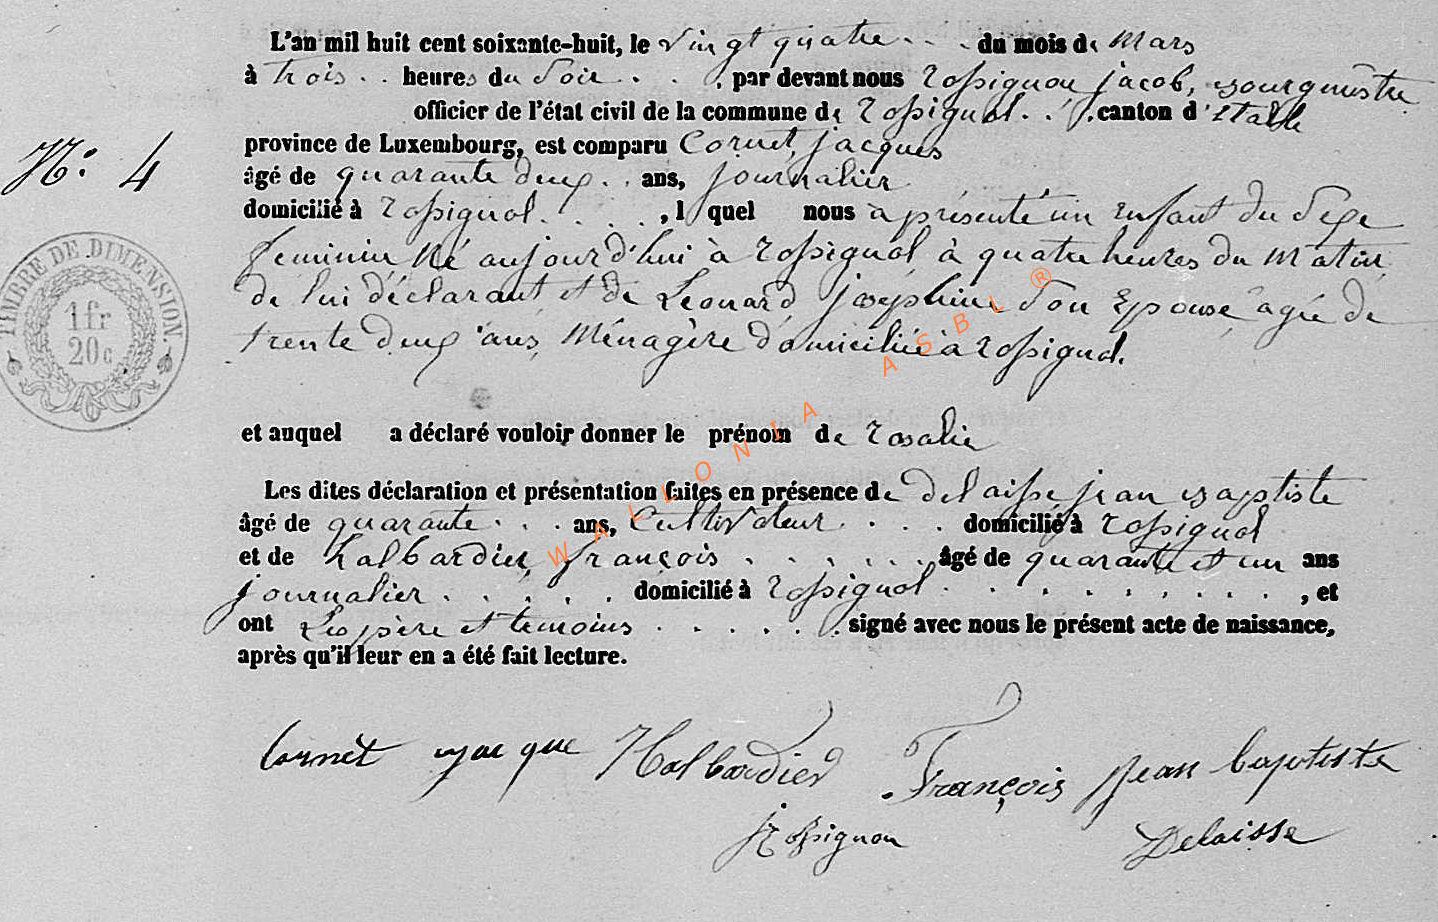 L'an mil huit cent soixante-huit, le vingt quatre . . . du mois de Mars
à trois . . heures du Soir . . . , par devant nous rossignon jacob, Bourgmestre
officier de l'état civil de la commune de rossignol . . . canton d'Etalle
province de Luxembourg, est comparu Cornet, jacques
N° 4
âgé de quarante deux . . ans, journalier
domicilié à rossignol . . . . , lequel nous a présenté un Enfant du Sexe
feminin Né aujourd'hui à rossignol à quatre heures du Matin,
de lui déclarant et de Léonard josephine Son Epouse agée de
trente deux ans, Ménagère domiciliée à rossignol.
TIMBRE DE DIMENSION.
1 fr
20 c
et auquel a déclaré vouloir donner le prénom de rosalie
Les dites déclaration et présentation faites en présence de delaisse jean Baptiste
âgé de quarante . . . ans, Cultivateur . . . . domicilié à rossignol
et de halbardier, françois . . . . . . âgé de quarante et un ans
journalier . . . . . . domicilié à rossignol . . . . . . . . . , et
ont Les père et temoins . . . . . . signé avec nous le présent acte de naissance,
après qu'il leur en a été fait lecture.
Cornet jacque Halbardier François Jean baptiste
J Rossignon Delaisse
WALLONIA ASBL ®